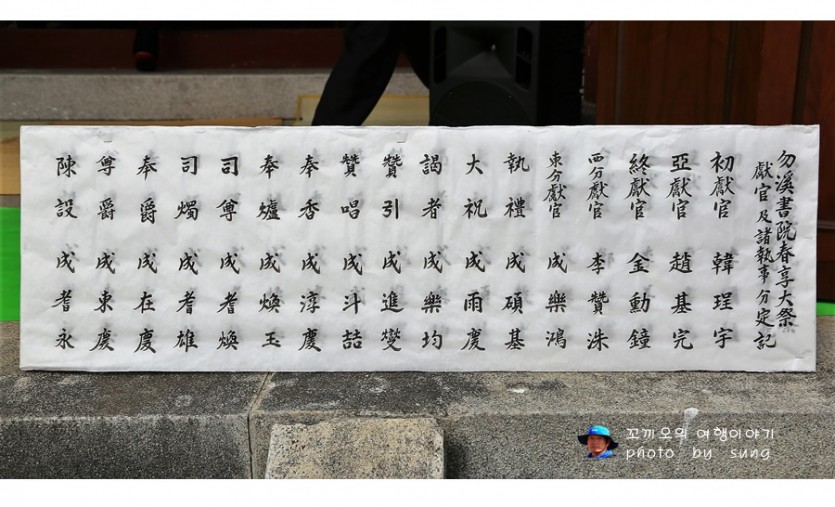 勿溪書院春享大祭
獻官及諸執事分定記
初獻官 韓珵宇
亞獻官 趙基完
終獻官 金勳鐘
西分獻官 李贊洙
東分獻官 成樂鴻
執禮 成碩基
大祝 成雨慶
謁者 成樂均
贊引 成進燮
贊唱 成斗喆
奉香 成淳慶
奉爐 成煥玉
司尊 成耆煥
司燭 成耆雄
奉爵 成在慶
尊爵 成東慶
陳設 成耆永
꼬끼오의 여행이야기
photo by sung